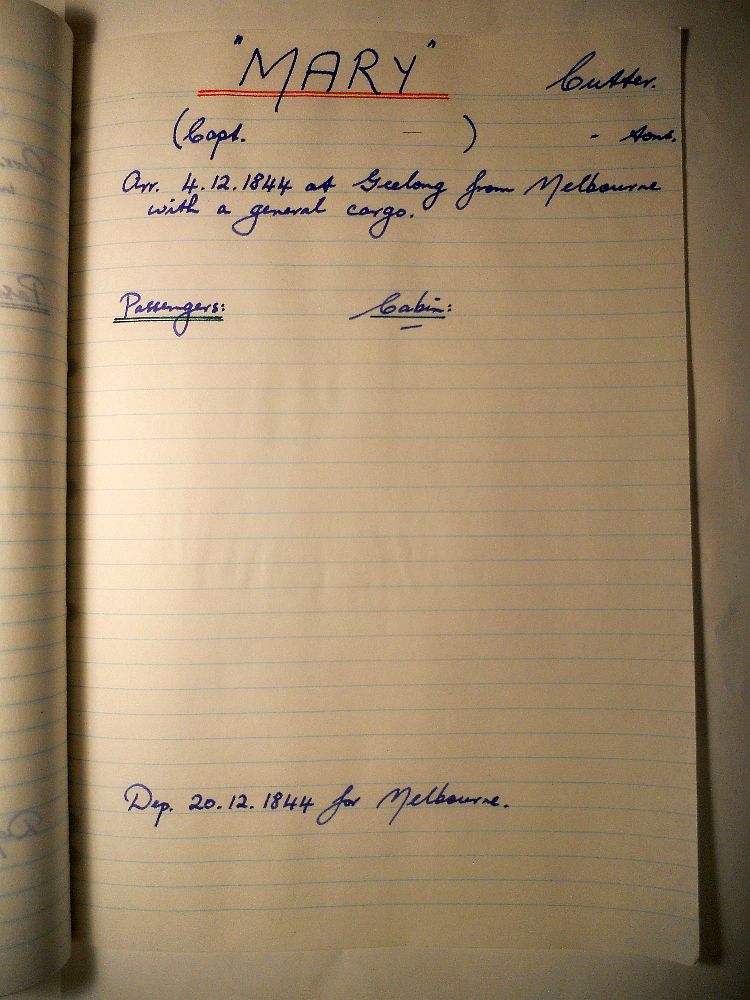 "MARY" Cutter.
(Capt. — ) - tons.
Arr. 4.12.1844 at Geelong from Melbourne
with a general cargo.
Passengers: Cabin:
—
Dep. 20.12.1844 for Melbourne.